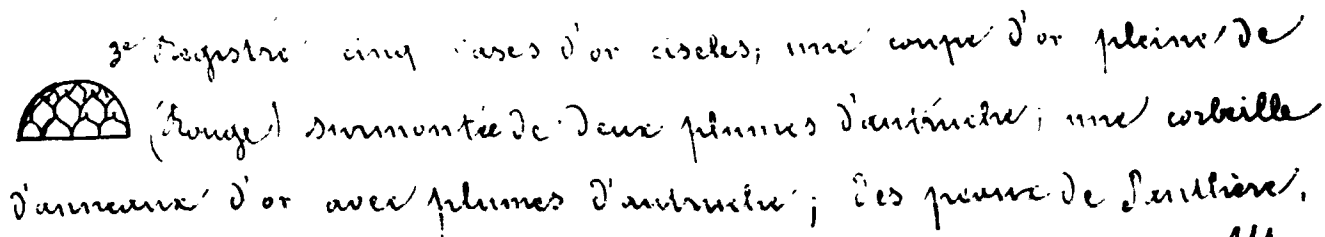 3e Registre cinq vases d'or ciselés; une coupe d'or pleine de
(Rouge) surmontée de deux plumes d'autruche; une corbeille
d'anneaux d'or avec plumes d'autruche; des peaux de Panthère.